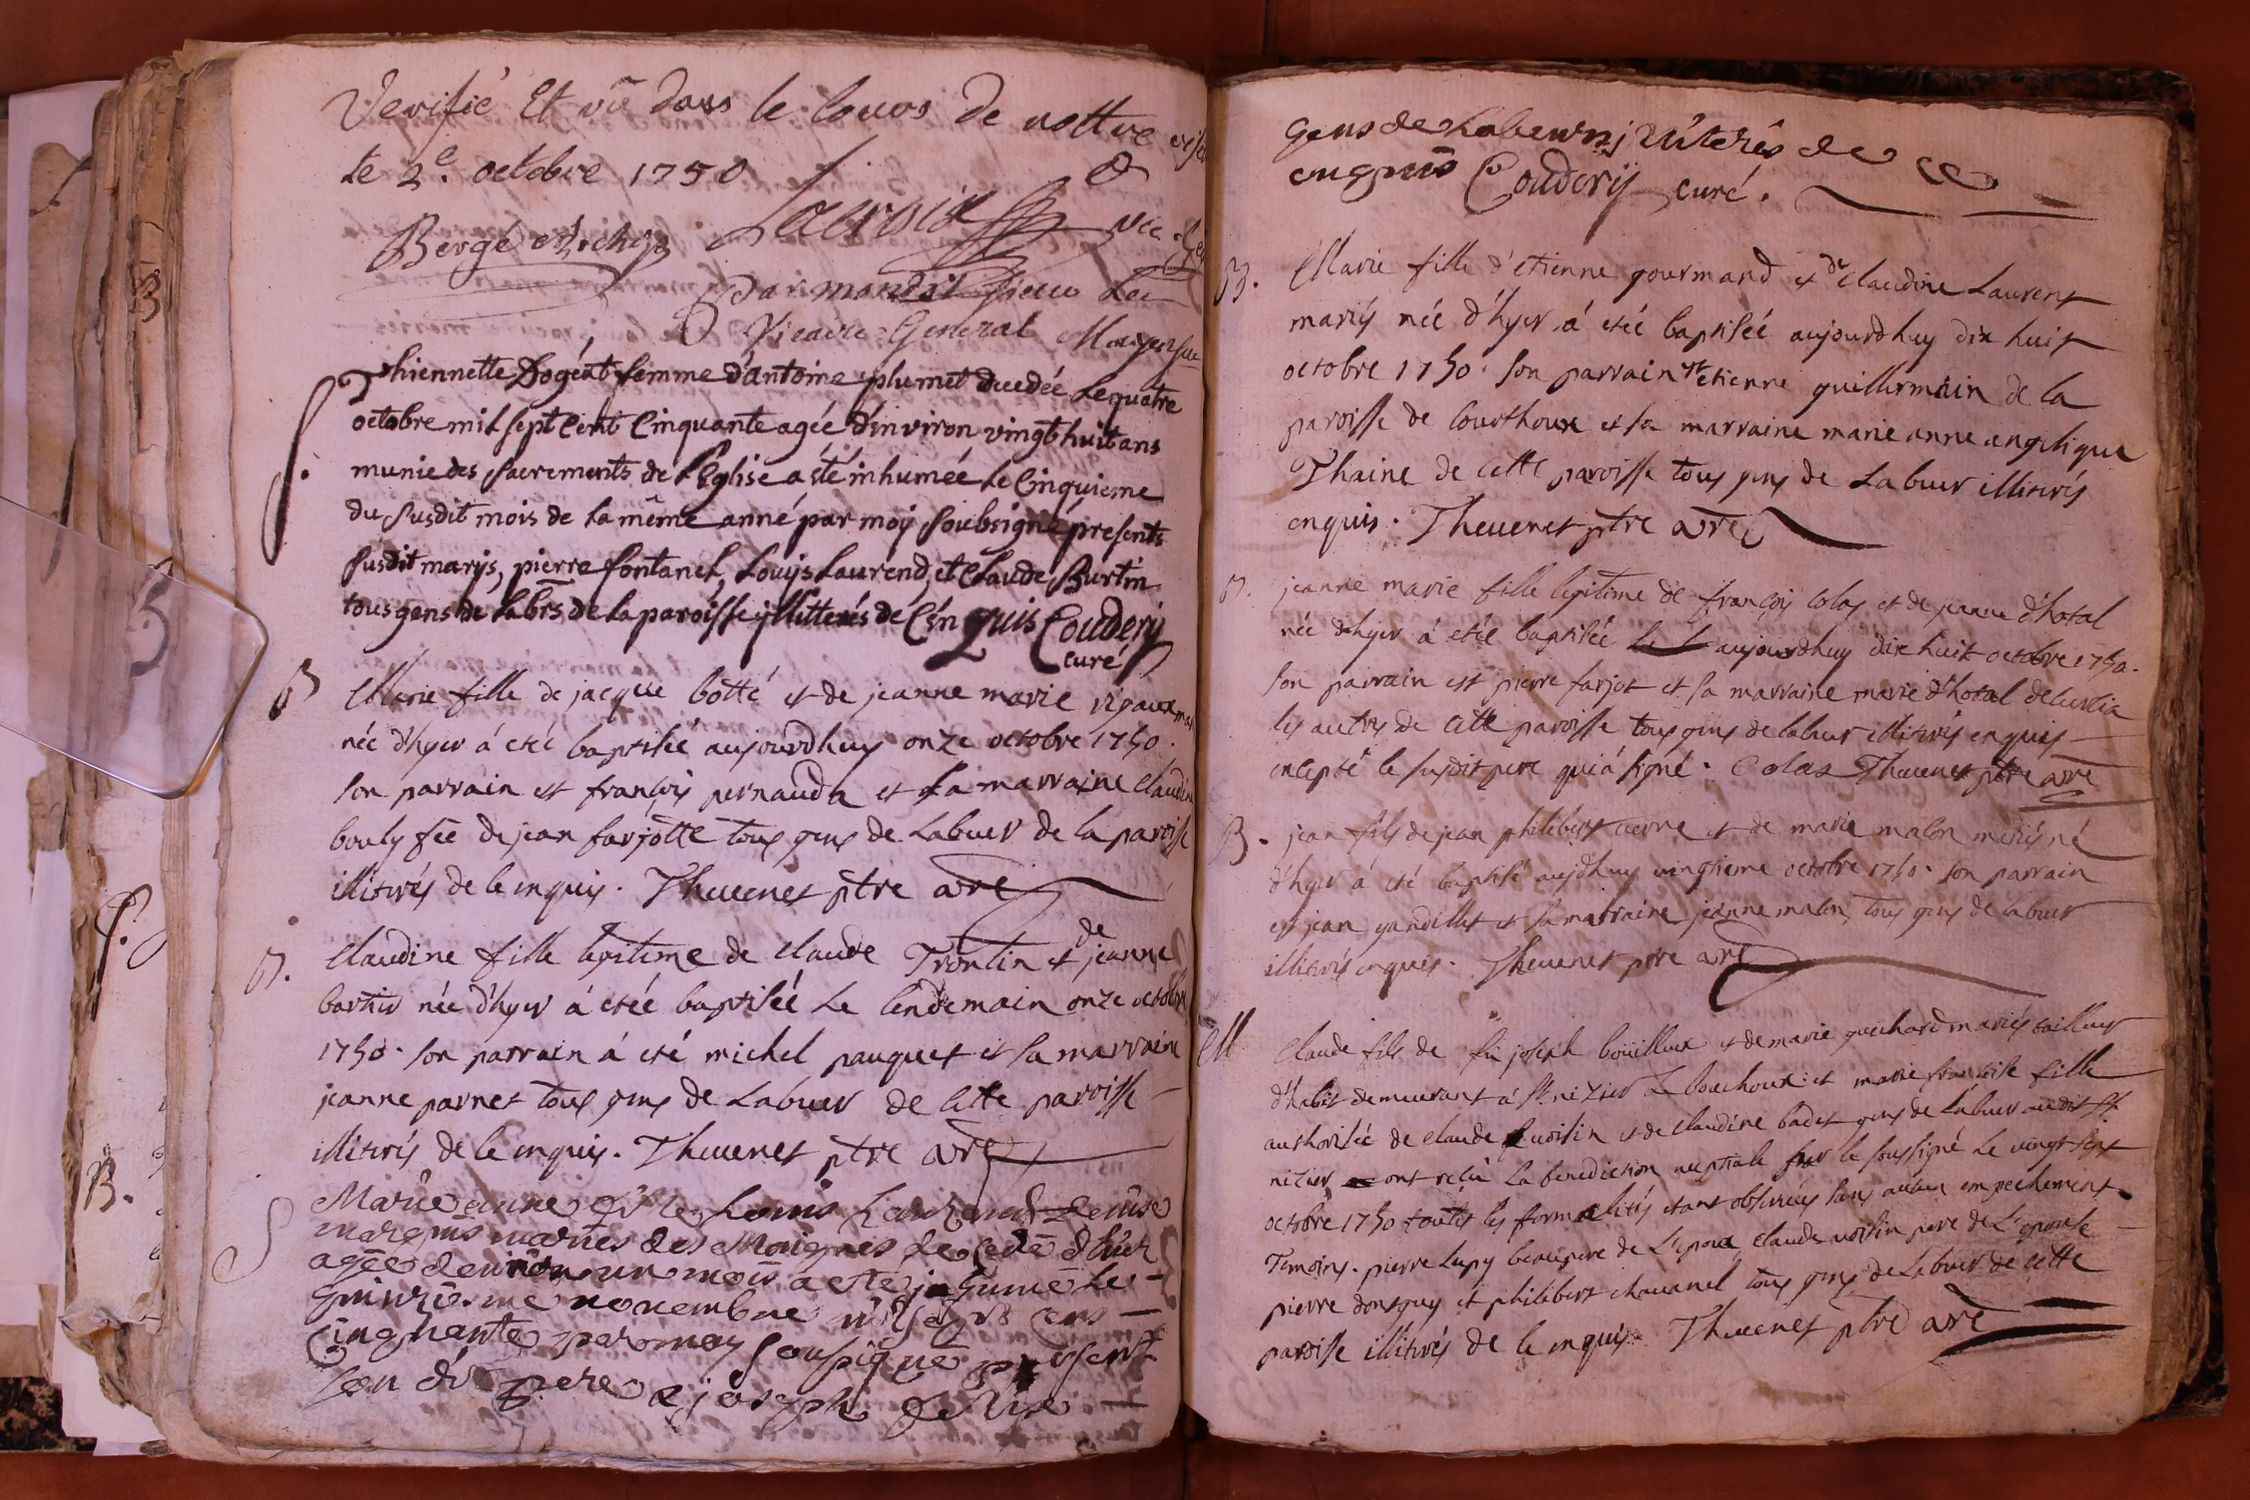 Verifié Et vû dans le Cours de nottre
le 2e. octobre 1750
Lacroix
Par mondit sieur Le
Vicaire General
S. Thiennette Dogéat femme d'antoine plumet duedée Le quatre
octobre mil sept Cent Cinquante agée d'environ vingt huit ans
munie des Sacrements de l'Eglise a été inhumée Le Cinquieme
du Susdit mois de la même anné par moy Soubsigné présents
Susdit marys, pierre fontanel, Louys Laurend, et Claude Burtin
tous gens de labrs de la paroisse jllitterés de Cén quis Coudery
curé
B Marie fille de jacque botté et de jeanne marie
née d'hyer á eteé baptiseé aujourdhuy onze octobre 1750.
son parrain est françois pernauda et sa marraine Claudine
bouly fée de jean farjotte tous gens de Labeur de la paroisse
illiterés de ce enquis. Thevenet ptre
B. Claudine fille legitime de Claude Trontin et de jeanne
née d'hyer á eteé baptiseé le lendemain onze octobre
1750. son parrain á eté michel pauquet et sa marraine
jeanne parnet tous gens de Labeur de Cette paroisse
illiterés de ce enquis. Thevenet ptre
S Marie anne Louis
marquis mariés des Moignes
agée denviron un mois a esté jnhumé le
quinziesme novembre mil sept cens
Cinquante par moy Soussigné present
son dit pere & joseph
gens de Labeur jlliterés de ce
enquis Coudery curé.
B. Marie fille d'etienne gourmand et de Claudine Laurent
mariés née d'hyer á eteé baptiseé aujourdhuy dix huit
octobre 1750. son parrain et etienne guillermain de la
paroisse de Courthoux et sa marraine marie anne angelique
Thaine de cette paroisse tous gens de Labeur illiterés
enquis. Thevenet ptre
B. jeanne marie fille legitime de françois Colas et de jeanne d'hotal
née d'hyer á eteé baptiseé aujourdhuy dix huit octobre 1750.
son parrain est pierre farjot et sa marraine marie d'hotal de
les autres de cette paroisse tous gens de labeur illiterés enquis
excepté le susdit pere qui á signé. Colas Thevenet ptre
B. jean fils de jean philibert et de marie malon mariés né
d'hyer á eté baptisé aujdhuy vingtieme octobre 1750. son parrain
est jean et sa marraine jeanne malon, tous gens de labeur
illiterés enquis. Thevenet ptre
M Claude fils de fû joseph boüilloux et de marie guichard mariés tailleur
d'habit demeurant á St. nizier Le bouchoux et marie françoise fille
authorisée de Claude voisin et de Claudine badet gens de Labeur audit St
nizier ont reçû La benediction nuptiale par le soussigné Le vingt
octobre 1750 toutes les formalités etant observées sans aucun empechement.
Temoins. pierre Lupy beaupere de L'epoux Claude voisin pere de L'epouse
pierre donsguy et philibert chavanel tous gens de Labeur de cette
paroisse illiterés de ce enquis. Thevenet ptre